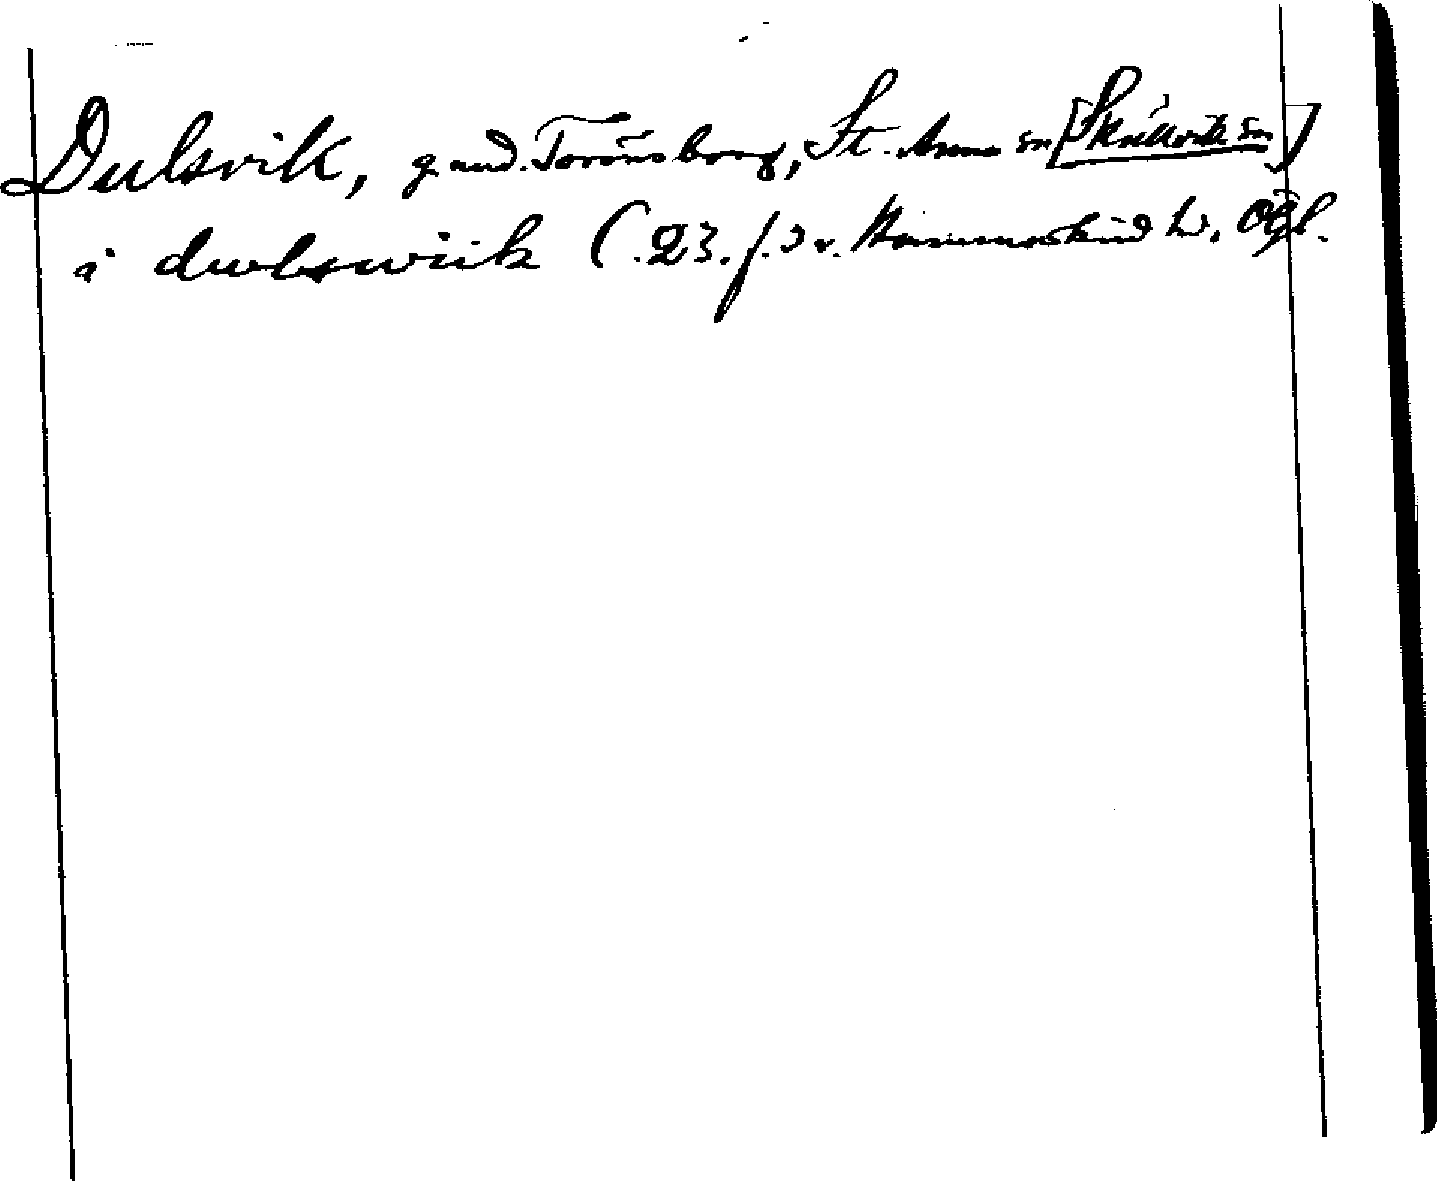 Dulsvik, g. und. Torönsborg, St. Anna sn [Skällvik sn]
i dwlswiik (.23. f. 3 v. Hammarkind h. Ögl.